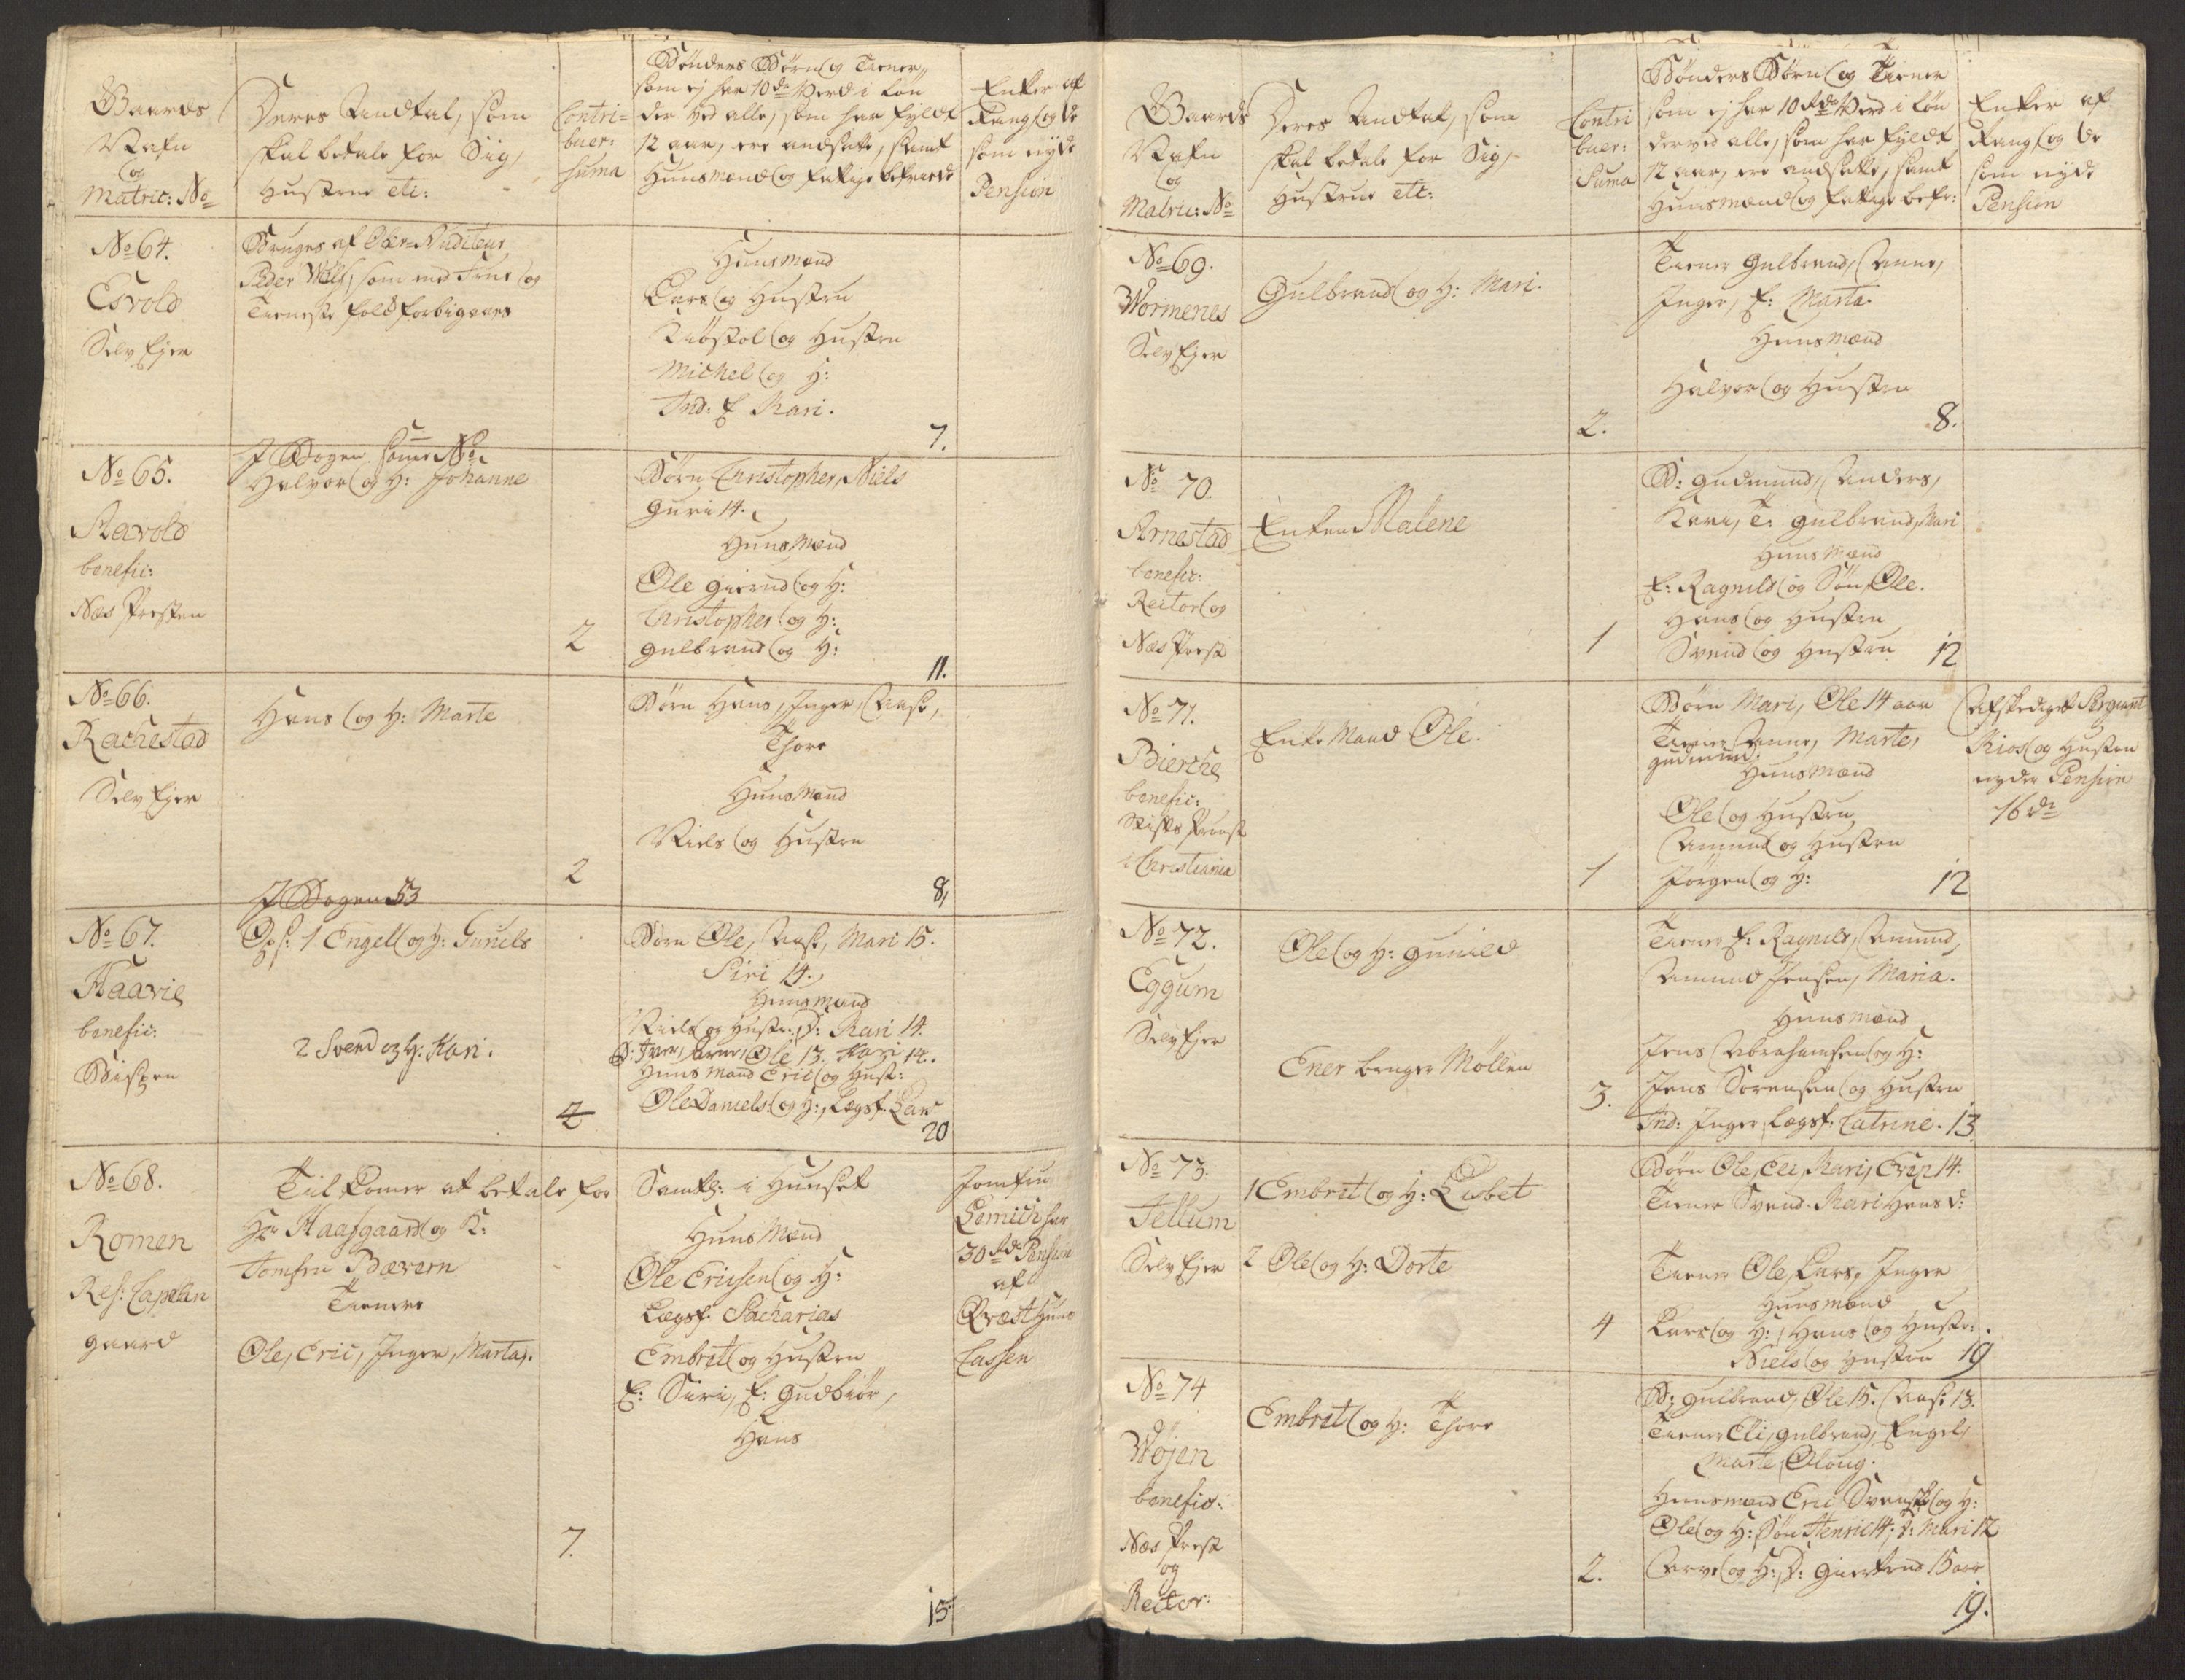 Gaards
Nafn
og
Matric: No
Deres Andtal, som
skal betale for Sig,
Hustrue etc:
Contri=
buer:
suma
Bönders Börn og Tiener
som ej har 10 dr Werd i Løn
der ved alle, som har fyldt
12 aar, ere andsatte, samt
Huusmænd og fattige
Enker af
Rang og de
som nyde
Pension
No 64.
Esvold
Selv Ejer
Bruges af Ober-Auditeur
Peder som med Frue og
Tieneste folk forbigaaes
Huusmænd
Lars og Hustru
Kiöstol og Hustru
Michel og H:
Ind: E Kari.
7.
No 65.
Aavold
benefic:
Næs Presten
I Bogen samme No
Halvor og H: Johanne
2
Börn Christopher, Niels
Guri 14.
Huusmænd
Ole Gierud og H:
Christopher og H:
Gulbrand og H:
11.
No 66.
Rachestad
Selv Ejer
Hans og H: Marte
2
Börn Hans, Inger, Aase,
Thore
Huusmænd
Niels og Hustru
8,
No 67.
Haavie
benefic:
Bispen
I Bogen 53
Ops: 1 Engel og H: Gunild
2 Svend og H: Kari.
4
Börn Ole, Aase, Mari 15.
Siri 14.
Huusmænd
Niels og Hustr: D: Kari 14.
B: Iver, Arne, Ole 13. Kari 14.
Huusmand Eric og Hust:
Ole Daniels: og H:, Lægsf. Lars
20
No 68.
Romen
Res: Capelan
gaard
Tilkomer at betale for
Hr Haasgaard og K:
Jomfru Bævern
Tienere
Ole, Eric, Inger, Marta.
7.
Samtl: i Huuset
Huusmænd
Ole Erichsen og H:
Lægsf. Sacharias
Embret og Hustru
E: Siri, E: Gudbiör,
Hans
15
Jomfru
Lemich har
30 Rd Pension
af
Qvæsthuus
Cassen
Gaards
Nafn
og
Matric: No
Deres Andtal, som
skal betale for Sig,
Hustrue etc:
Contri
buer:
Suma
Bönders Börn og Tiener
som ej har 10 Rdr Werd i Løn
derved alle, som har fyldt
12 aar, ere andsatte, samt
Huusmænd og fattige befr:
Enker af
Rang og de
som nyde
Pension
No 69.
Wormenes
Selv Ejer
Gulbrand og H: Mari.
2.
Tiener Gulbrand, Anne,
Inger, E: Marta.
Huusmænd
Halvor og Hustru
8.
No 70.
Arnestad
benefic:
Rector og
Næs Prest
Enken Malene
1
B: Gudmund, Anders,
Kari, T: Gulbrand, Mari
Huusmænd
E: Ragnild og Sön Ole.
Hans og Hustru
Svend og Hustru
12
No 71.
Bierche
benefic:
Stifts Provst
i Christiania
Enke Mand Ole.
1
Börn Mari, Ole 14 aar
Tiener Anne, Marte,
Gudmund
Huusmænd
Ole og Hustru
Amund og Hustru
Jörgen og H:
12
Afskediget Sergeant
Kios og Hustru
nyder Pension
16 dr
No 72.
Eggum
Selv Ejer
Ole og H: Gunild
Ener bruger Möllen
3.
Tiener E: Ragnild, Amund,
Amund Jensen, Maria.
Huusmænd
Jens Abrahamsen og H:
Jens Sörensen og Hustru
Ind: Inger, Lægsf: Catrine. 13
No 73.
Jellum
Selv Ejer
1 Embret og H: Lisbet
2 Ole og H: Dorte
4
Börn Ole, Eli, Kari, Even 14.
Tiener Svend. Kari Hans D:
Tiener Ole, Lars, Inger
Huusmænd
Lars og H:, Hans og Hustr:.
Niels og Hustru 19
No 74
Wöjen
benefic:
Næs Prest
og
Rector:
Embret og H: Thore
2.
B: Gulbrand, Ole 15. Aase 13.
Tiener Eli, Gulbrand, Engel,
Marte, Oloug.
Huusmænd Eric Svenske og H:
Ole og H: Sön Henric 14. D: Mari 12
Arve og H:, D: Giertrud 15 aar
19.